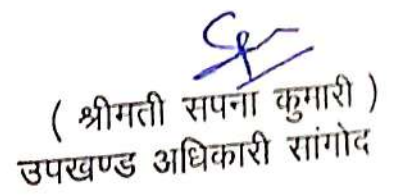 ( श्रीमती सपना कुमारी )
उपखण्ड अधिकारी सांगोद